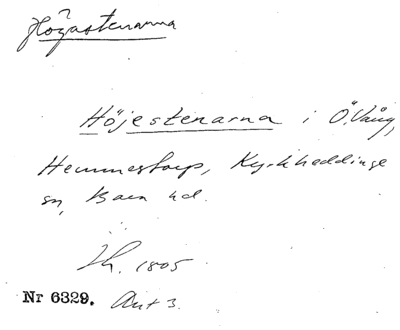 Högastenarna
Höjestenarna i Ö. Vång,
Hemmestorp, Kyrkheddinge
sn, Bara hd.
1805
Nr 6329. Ant 3.